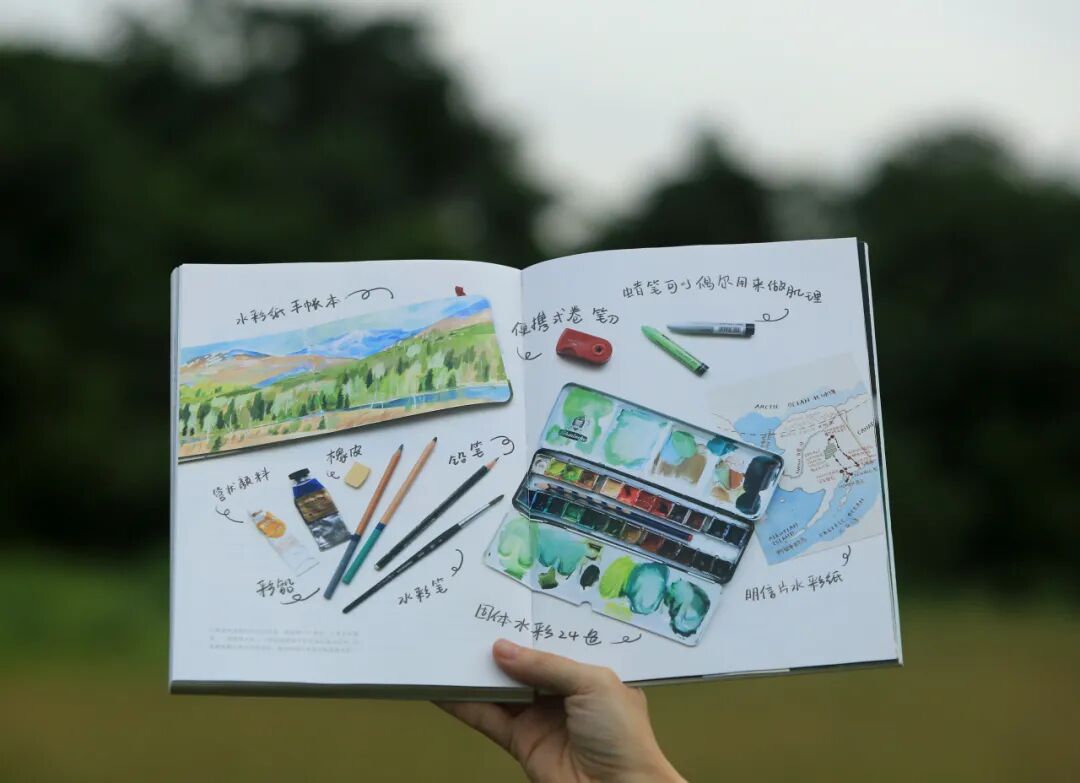 水彩纸手帐本
橡皮
铅笔
管状颜料
彩铅
水彩笔
便携式卷笔刀
蜡笔可以偶尔用来做肌理
固体水彩24色
明信片水彩纸
ARCTIC OCEAN
ALEUTIAN
ISLAND
PACIFIC OCEAN